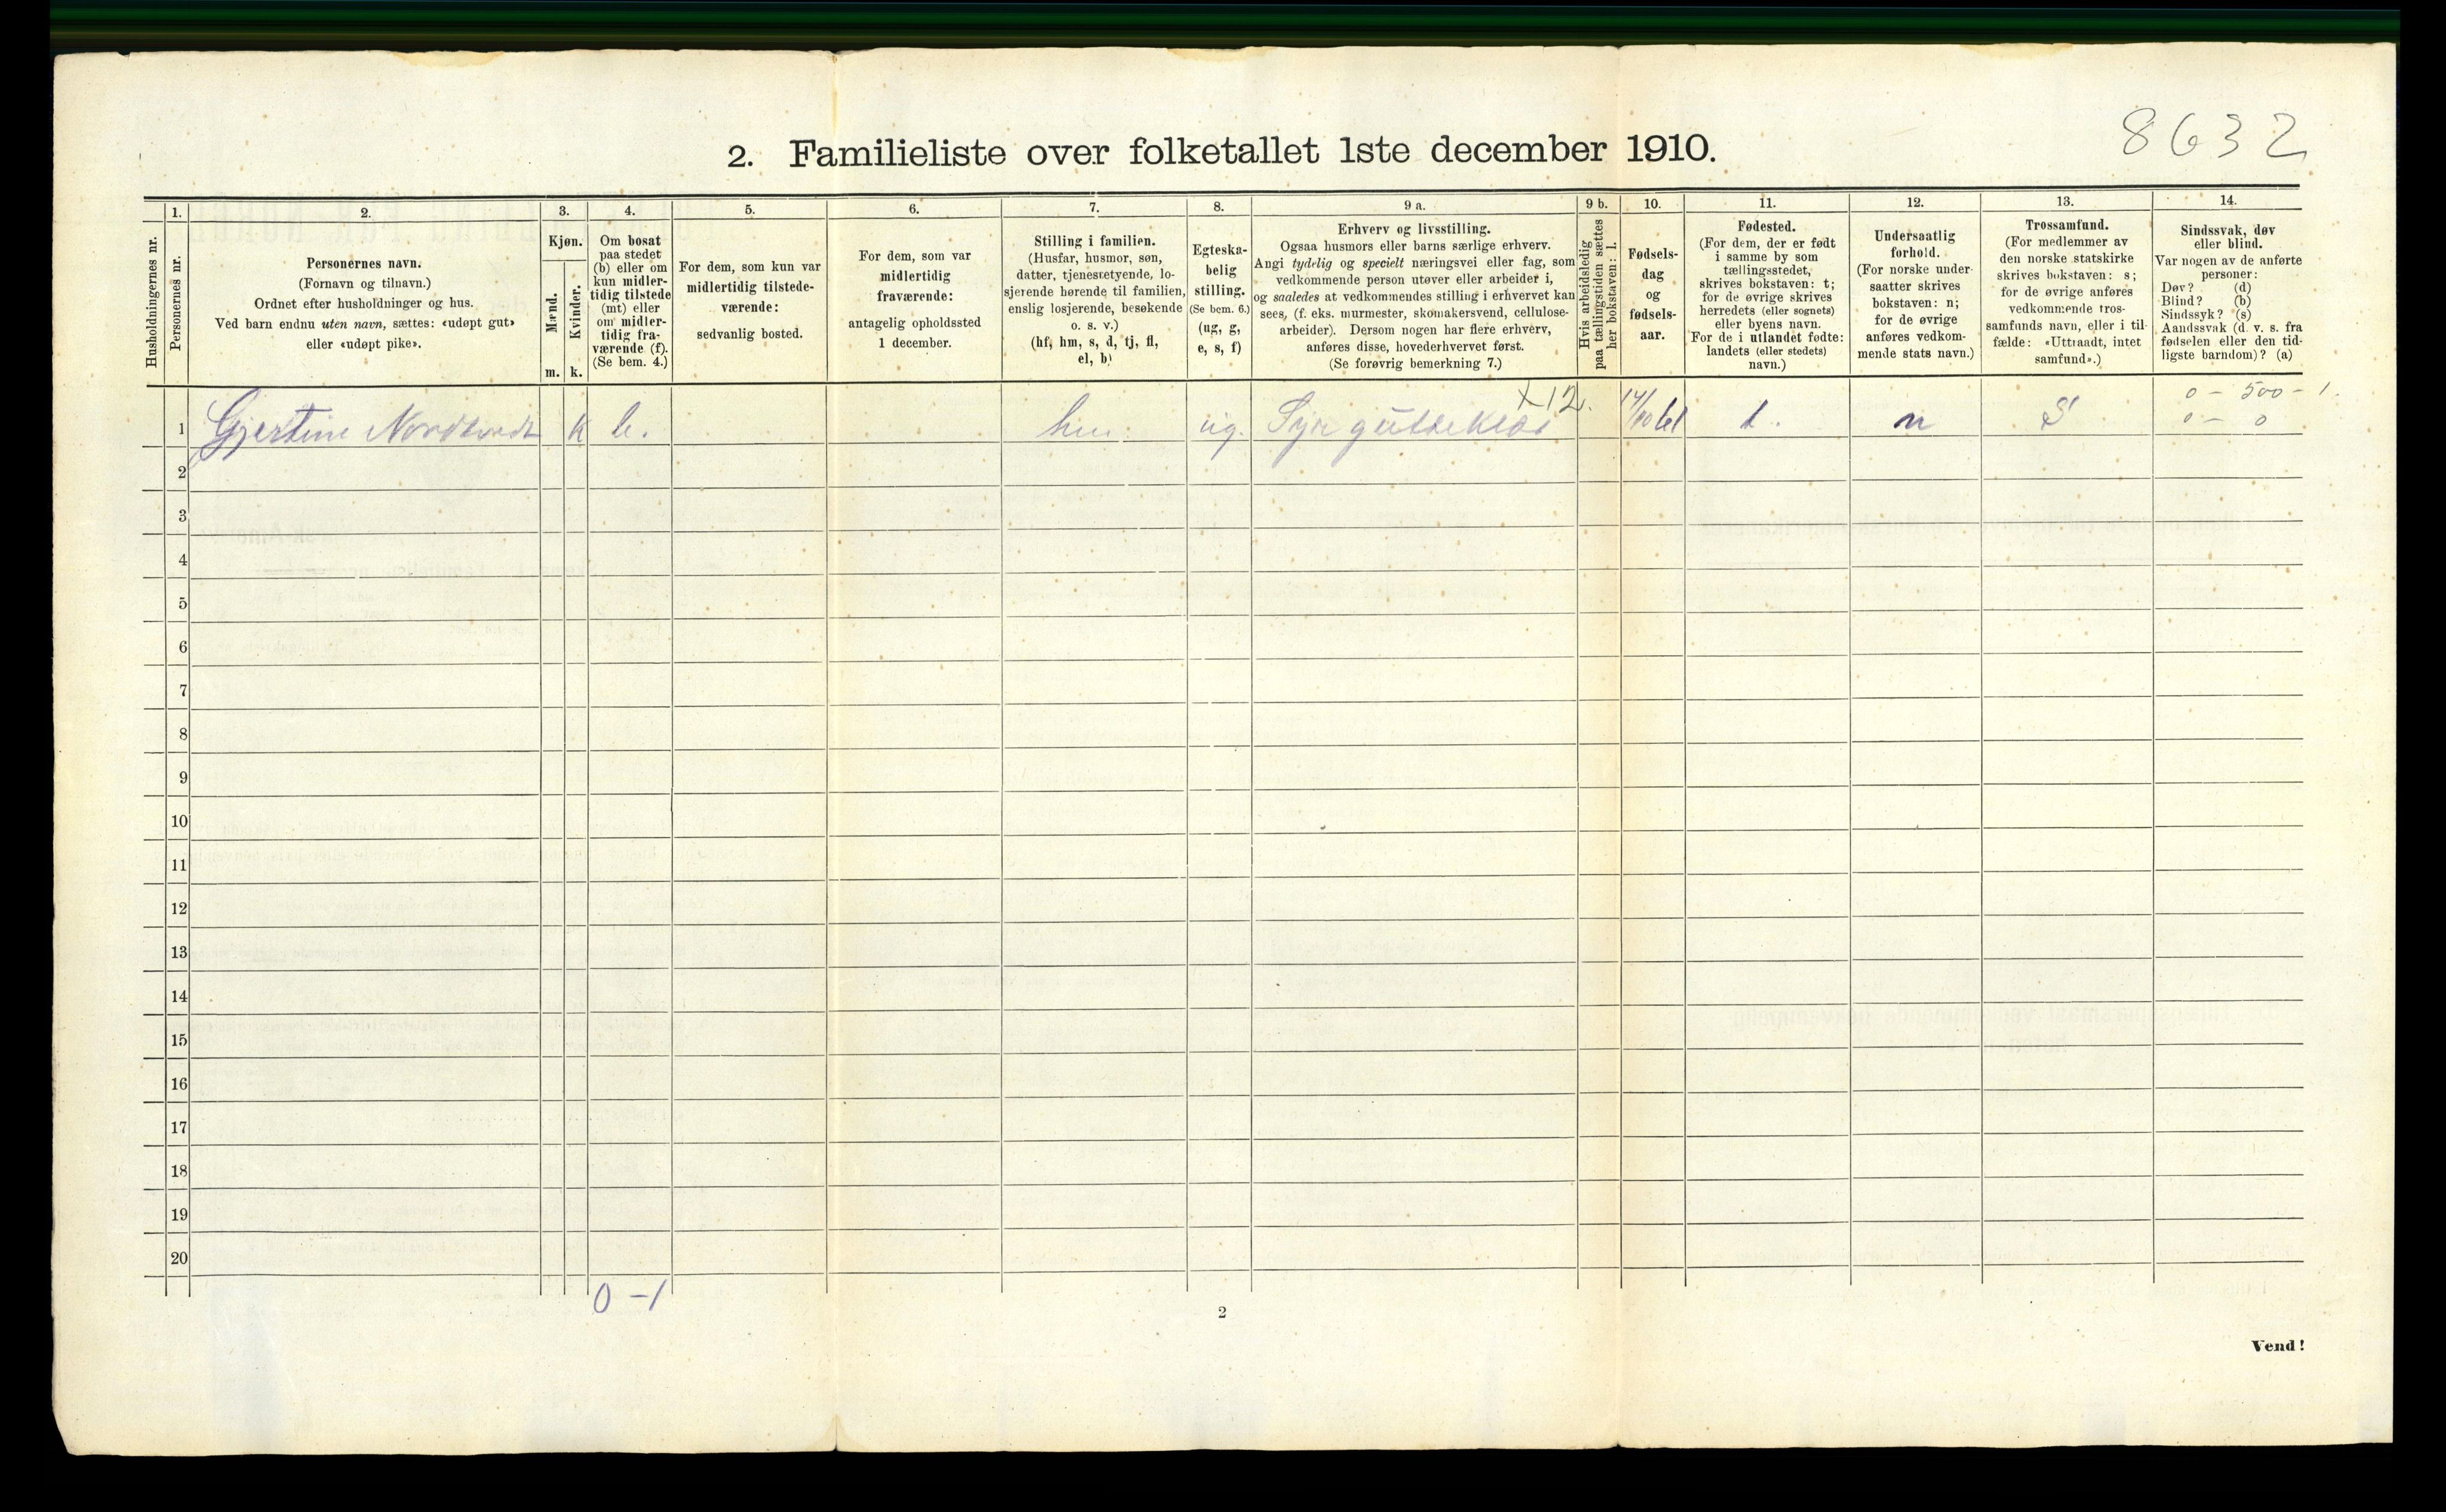 8632
2. Familieliste over folketallet 1ste december 1910.
Husholdningernes nr.
1.
Personernes nr.
2.
Personernes navn.
(Fornavn og tilnavn.)
Ordnet efter husholdninger og hus.
Ved barn endnu uten navn, sættes: «udøpt gut»
eller «udøpt pike».
3.
Kjøn.
Mænd.
Kvinder.
m. k.
4.
Om bosat
paa stedet
(b) eller om
kun midler-
tidig tilstede
(mt) eller
om midler-
tidig fra-
værende (f).
(Se bem. 4.)
5.
For dem, som kun var
midlertidig tilstede-
værende:
sedvanlig bosted.
6.
For dem, som var
midlertidig
fraværende:
antagelig opholdssted
1 december.
7.
Stilling i familien.
(Husfar, husmor, søn,
datter, tjenestetyende, lo-
sjerende hørende til familien,
enslig losjerende, besøkende
o. s. v.)
(hf, hm, s, d, tj, fl,
el, b)
8.
Egteska-
belig
stilling.
(Se bem. 6.)
(ug, g,
e, s, f)
9 a.
Erhverv og livsstilling.
Ogsaa husmors eller barns særlige erhverv.
Angi tydelig og specielt næringsvei eller fag, som
vedkommende person utøver eller arbeider i,
og saaledes at vedkommendes stilling i erhvervet kan
sees, (f. eks. murmester, skomakersvend, cellulose-
arbeider). Dersom nogen har flere erhverv,
anføres disse, hovederhvervet først.
(Se forøvrig bemerkning 7.)
9 b.
Hvis arbeidsledig
paa tællingstiden sættes
her bokstaven: l.
10.
Fødsels-
dag
og
fødsels-
aar.
11.
Fødested.
(For dem, der er født
i samme by som
tællingsstedet,
skrives bokstaven: t;
for de øvrige skrives
herredets (eller sognets)
eller byens navn.
For de i utlandet fødte:
landets (eller stedets)
navn.)
12.
Undersaatlig
forhold.
(For norske under-
saatter skrives
bokstaven: n;
for de øvrige
anføres vedkom-
mende stats navn.)
13.
Trossamfund.
(For medlemmer av
den norske statskirke
skrives bokstaven: s;
for de øvrige anføres
vedkommende tros-
samfunds navn, eller i til-
fælde: «Uttraadt, intet
samfund».)
14.
Sindssvak, døv
eller blind.
Var nogen av de anførte
personer:
Døv? (d)
Blind? (b)
Sindssyk? (s)
Aandssvak (d. v. s. fra
fødselen eller den tid-
ligste barndom)? (a)
X12. 0 - 500 - 1.
1 Gjertine k b. hm ug. Syr 14/10 61 t. n S 0 - 0
2
3
4
5
6
7
8
9
10
11
12
13
14
15
16
17
18
19
20
0 - 1
2
Vend!